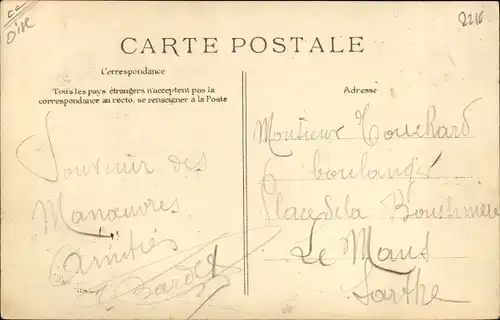 Oise
2216
CARTE POSTALE
Correspondance
Tous les pays étrangers n'acceptent pas la
correspondance au recto, se renseigner à la Poste
Souvenir des
Manœuvres
Amitiés
Bardet
Adresse
Monsieur Touchard
boulanger
Place de la
Le Mans
Sarthe